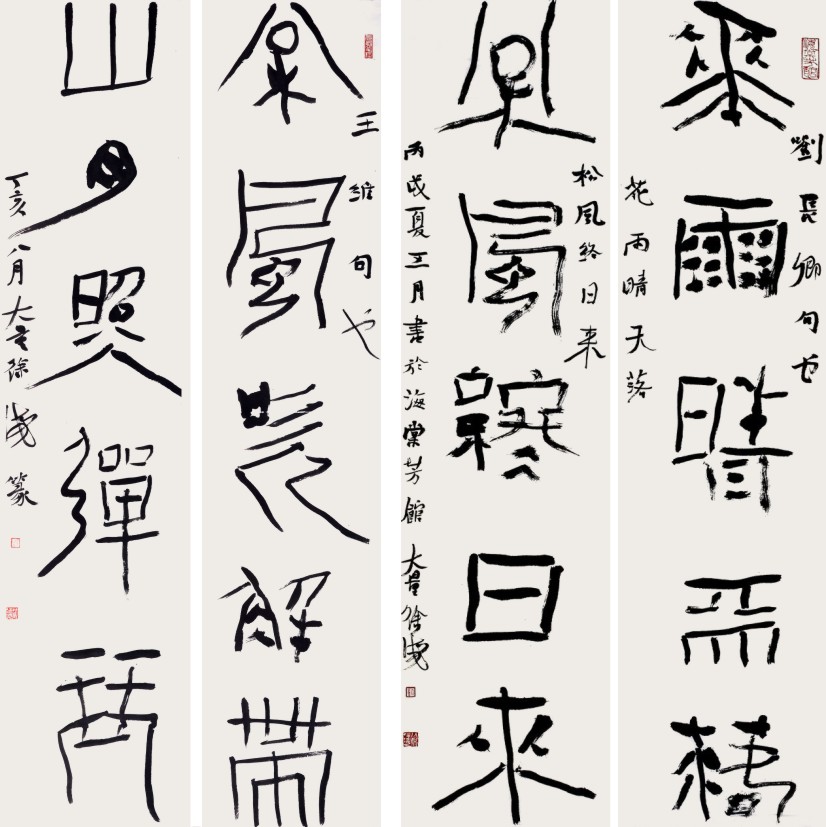 劉長卿句也
花雨晴天落
花雨晴天落
松風终日来
松風終日來
丙戌夏三月書於海棠芳館 大量徐
王維句也
松風吹解帶
山月照彈琴
丁亥八月大量徐 篆